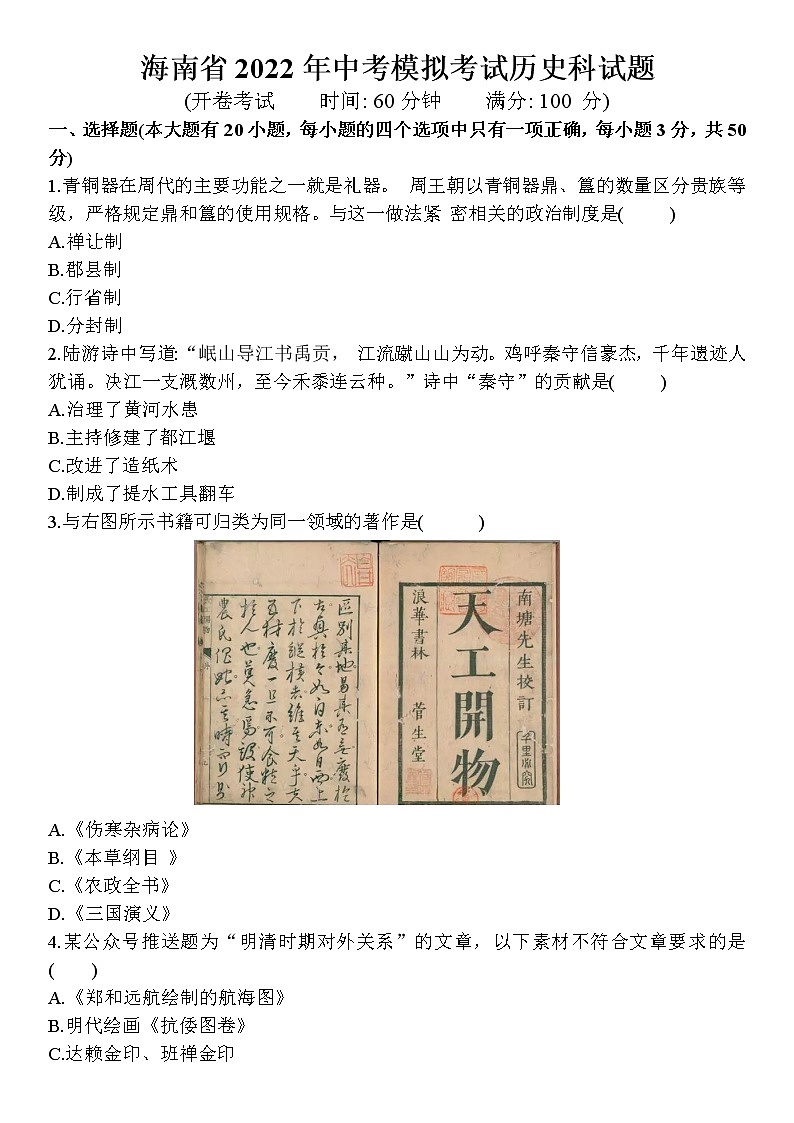 海南省 2022 年中考模拟考试历史科试题
(开卷考试 时间: 60 分钟 满分: 100 分)
一、选择题(本大题有 20 小题，每小题的四个选项中只有一项正确，每小题 3 分，共 50
分)
1.青铜器在周代的主要功能之一就是礼器。 周王朝以青铜器鼎、簋的数量区分贵族等
级，严格规定鼎和簋的使用规格。与这一做法紧 密相关的政治制度是( )
A.禅让制
B.郡县制
C.行省制
D.分封制
2.陆游诗中写道:“岷山导江书禹贡， 江流蹴山山为动。鸡呼秦守信豪杰，千年遗迹人
犹诵。决江一支溉数州，至今禾黍连云种。”诗中“秦守”的贡献是( )
A.治理了黄河水患
B.主持修建了都江堰
C.改进了造纸术
D.制成了提水工具翻车
3.与右图所示书籍可归类为同一领域的著作是( )
南塘先生挍訂
天工開物
浪華書林 菅生堂
A.《伤寒杂病论》
B.《本草纲目 》
C.《农政全书》
D.《三国演义》
4.某公众号推送题为“明清时期对外关系”的文章，以下素材不符合文章要求的是
( )
A.《郑和远航绘制的航海图》
B.明代绘画《抗倭图卷》
C.达赖金印、班禅金印